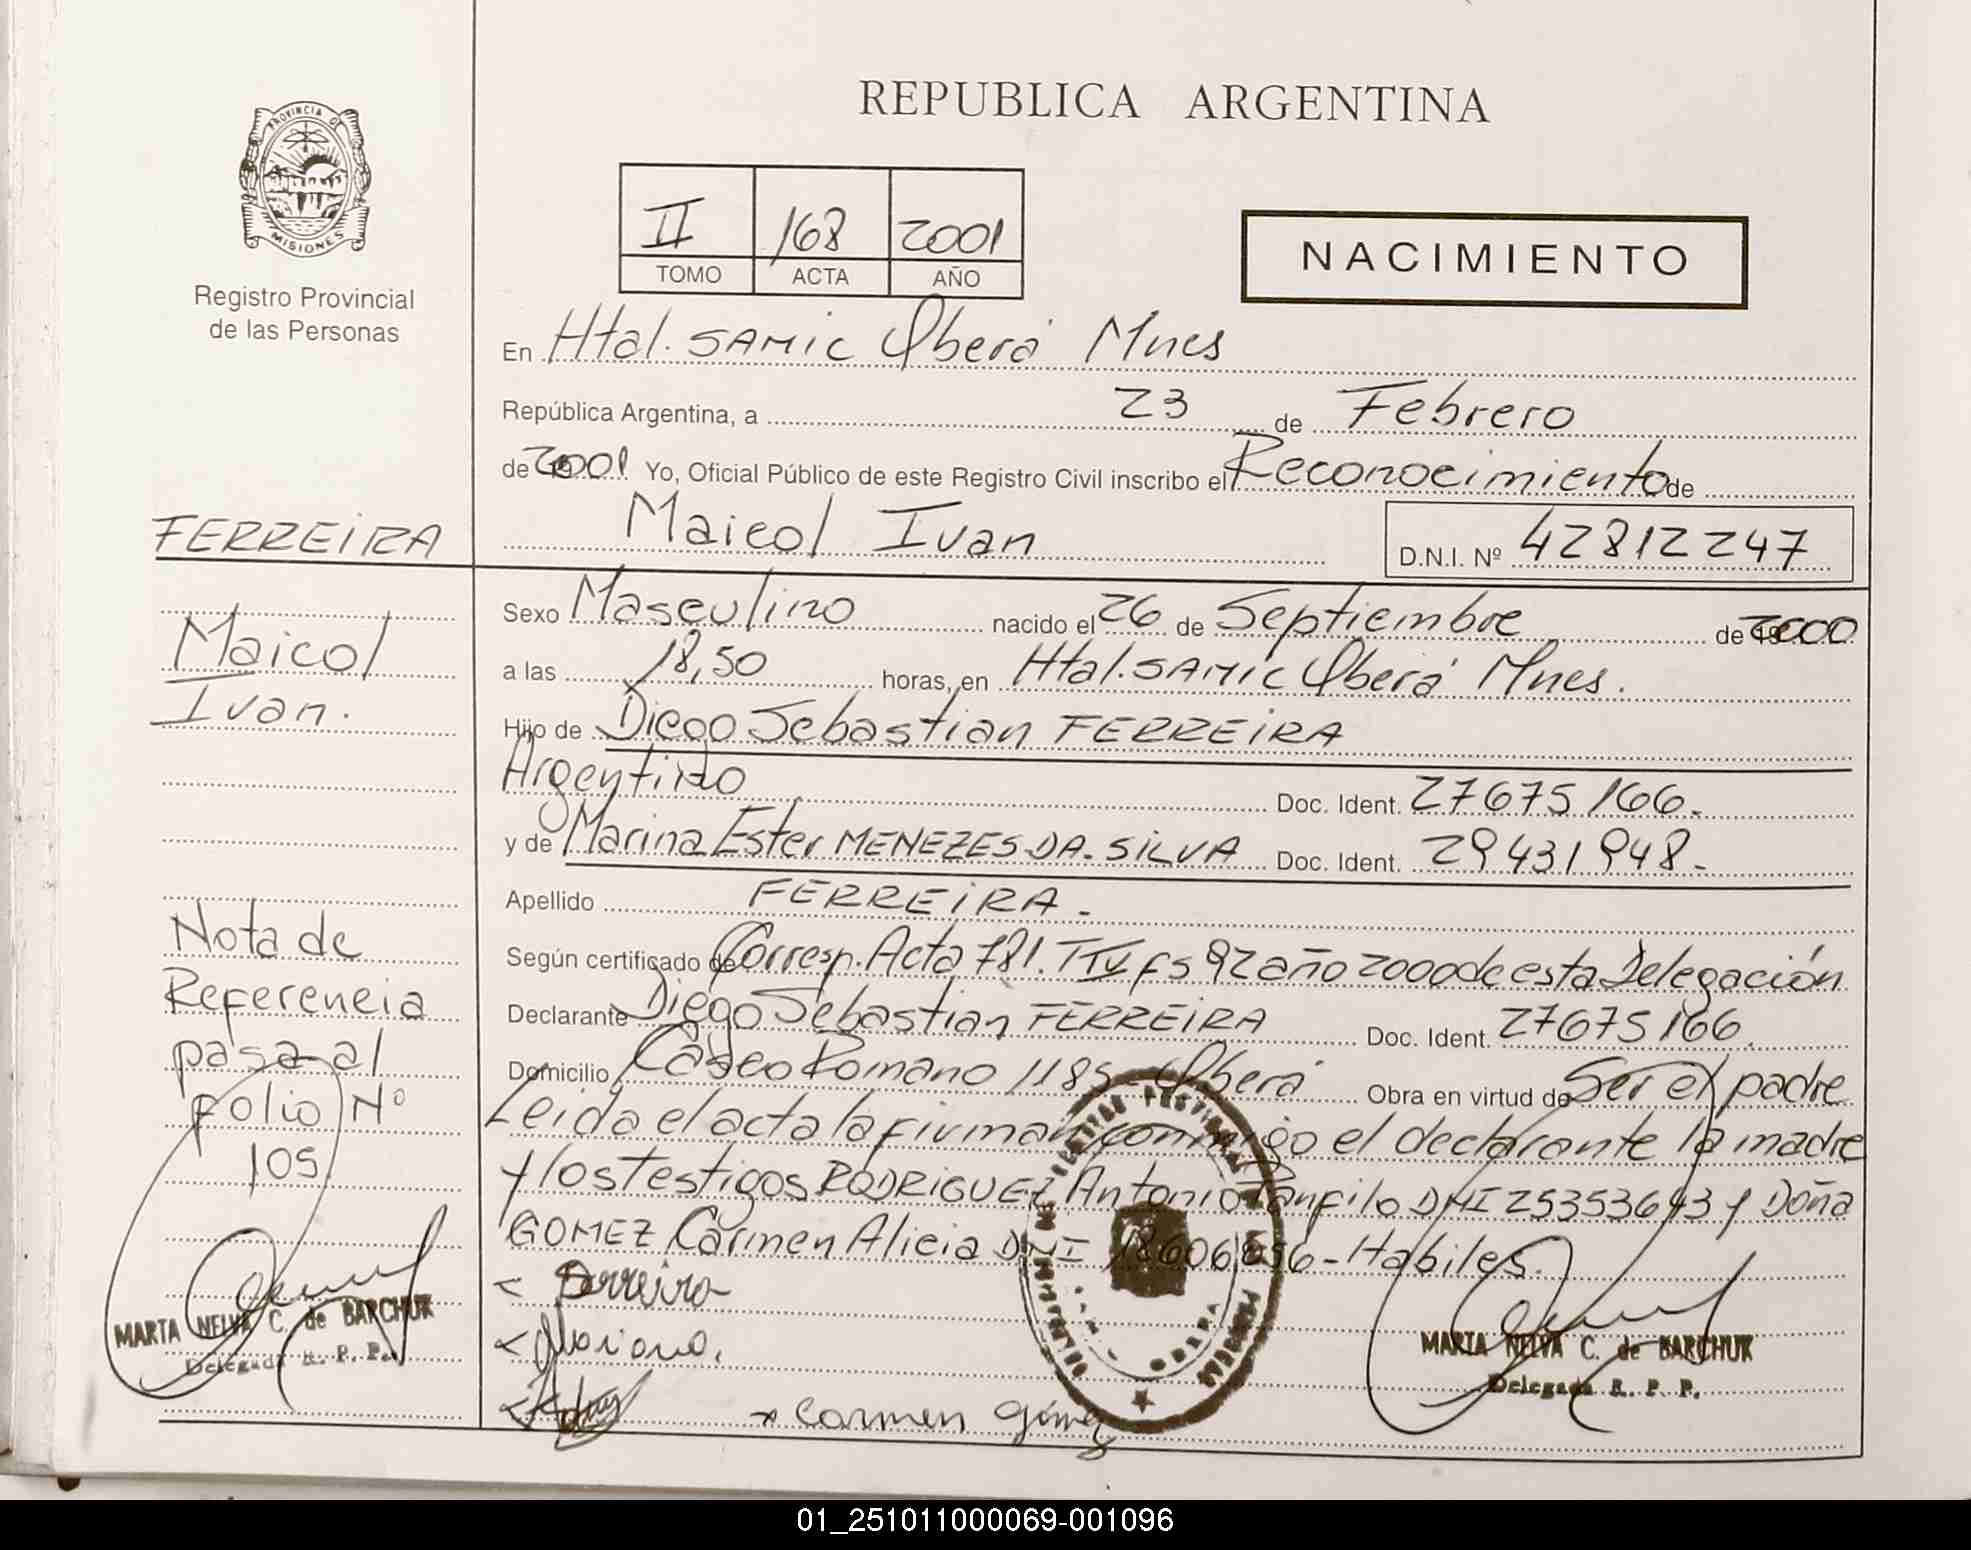 REPUBLICA ARGENTINA
PROVINCIA DE
MISIONES
Registro Provincial
de las Personas
II 168 2001
TOMO ACTA AÑO
NACIMIENTO
En Htal. SAMIC Oberá Mnes
República Argentina, a 23 de Febrero
de 2001 Yo, Oficial Público de este Registro Civil inscribo el Reconocimiento de
Maicol Ivan D.N.I. Nº 42812247
FERREIRA
Maicol
Ivan.
Sexo Masculino nacido el 26 de Septiembre de 2000
a las 18,50 horas, en Htal. SAMIC Oberá Mnes.
Hijo de Diego Sebastian FERREIRA
Argentino Doc. Ident. 27675166.
y de Marina Ester MENEZES DA. SILVA Doc. Ident. 29431948.-
Apellido FERREIRA.-
Según certificado de Corresp. Acta 781. TIV fs 92 año 2000 de esta Delegación
Declarante Diego Sebastian FERREIRA Doc. Ident. 27675166.
Domicilio Caseo Romano 1185 - Oberá Obra en virtud de Ser el padre
Leida el acta la firman conmigo el declarante la madre
y los testigos RODRIGUEZ Antonio Panfilo DNI 25353643 y Doña
GOMEZ Carmen Alicia DNI 18606856 - Habiles.
Nota de
Referencia
pasa al
folio Nº
105
Ferreira
Mariana.
Carmen Gómez
MARTA NELVA C. de BARCHUK
Delegada R. P. P.
MARTA NELVA C. de BARCHUK
Delegada R. P. P.
01_251011000069-001096